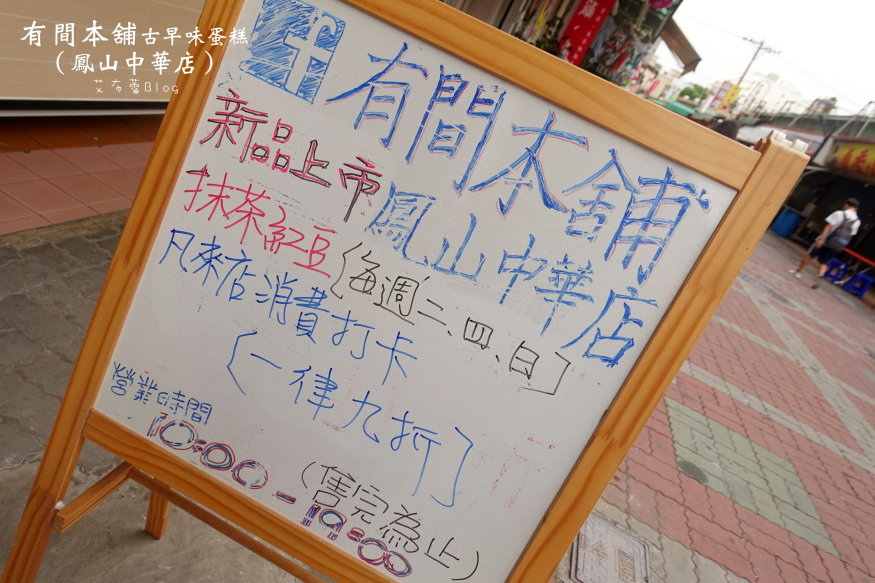 有間本舖古早味蛋糕
(鳳山中華店)
艾布蕾Blog
f 有間本舖
鳳山中華店
新品上市
抹茶紅豆(每週二、四、日)
凡來店消費打卡
(一律九折)
營業時間
10:00-19:00
(售完為止)